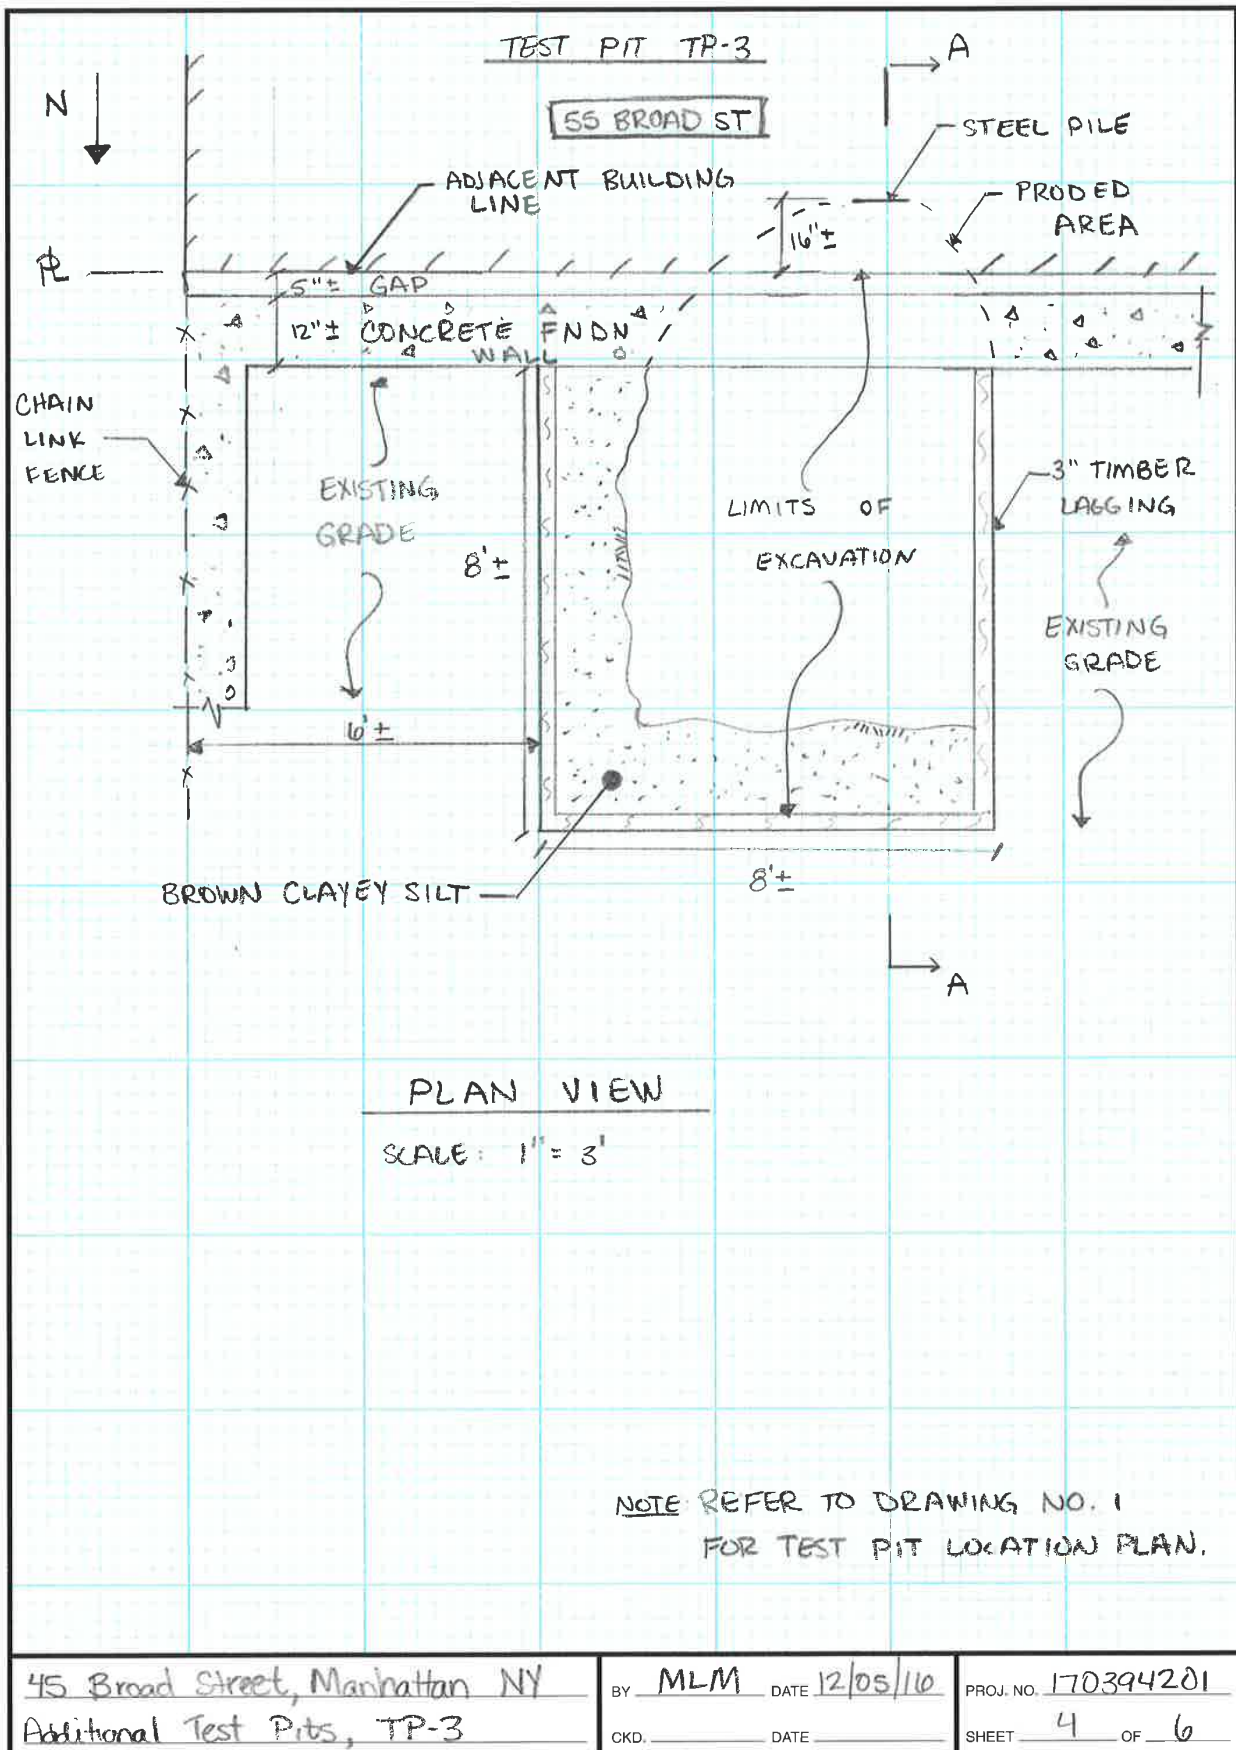 TEST PIT TP-3
A
N
55 BROAD ST
STEEL PILE
ADJACENT BUILDING
LINE
PRODED
AREA
16"±
PL
5"± GAP
12"± CONCRETE FNDN
WALL
CHAIN
LINK
FENCE
EXISTING
GRADE
8'±
LIMITS OF
EXCAVATION
3" TIMBER
LAGGING
EXISTING
GRADE
6'±
8'±
BROWN CLAYEY SILT
A
PLAN VIEW
SCALE: 1" = 3'
NOTE: REFER TO DRAWING NO. 1
FOR TEST PIT LOCATION PLAN.
45 Broad Street, Manhattan NY
Additional Test Pits, TP-3
BY MLM DATE 12/05/16
CKD. DATE
PROJ. NO. 170394201
SHEET 4 OF 6